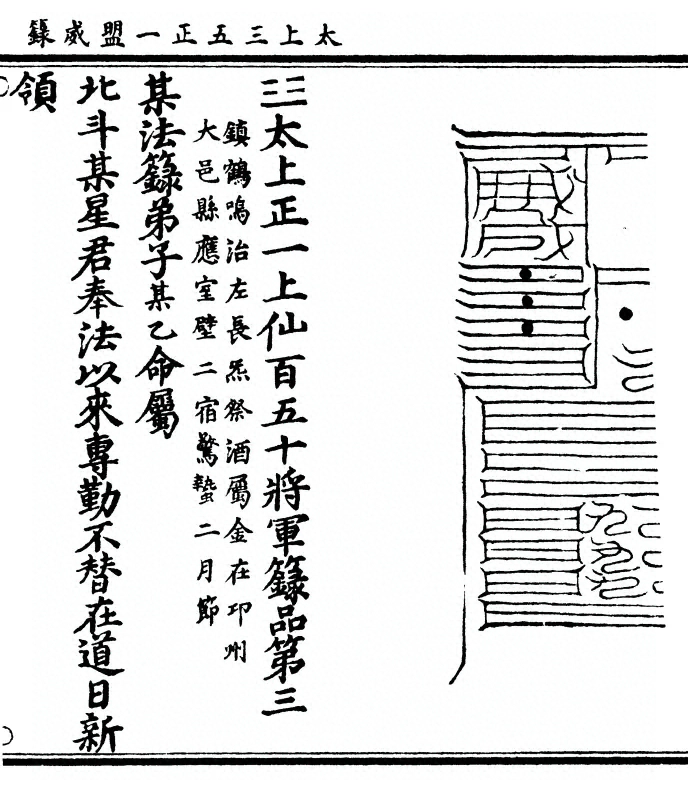 太上三五正一盟威籙
三三太上正一上仙百五十將軍籙品第三
鎮鶴鳴治左長炁祭酒屬金在邛州
大邑縣應室壁二宿驚蟄二月節
某法籙弟子某乙命屬
北斗某星君奉法以來專勤不替在道日新
領